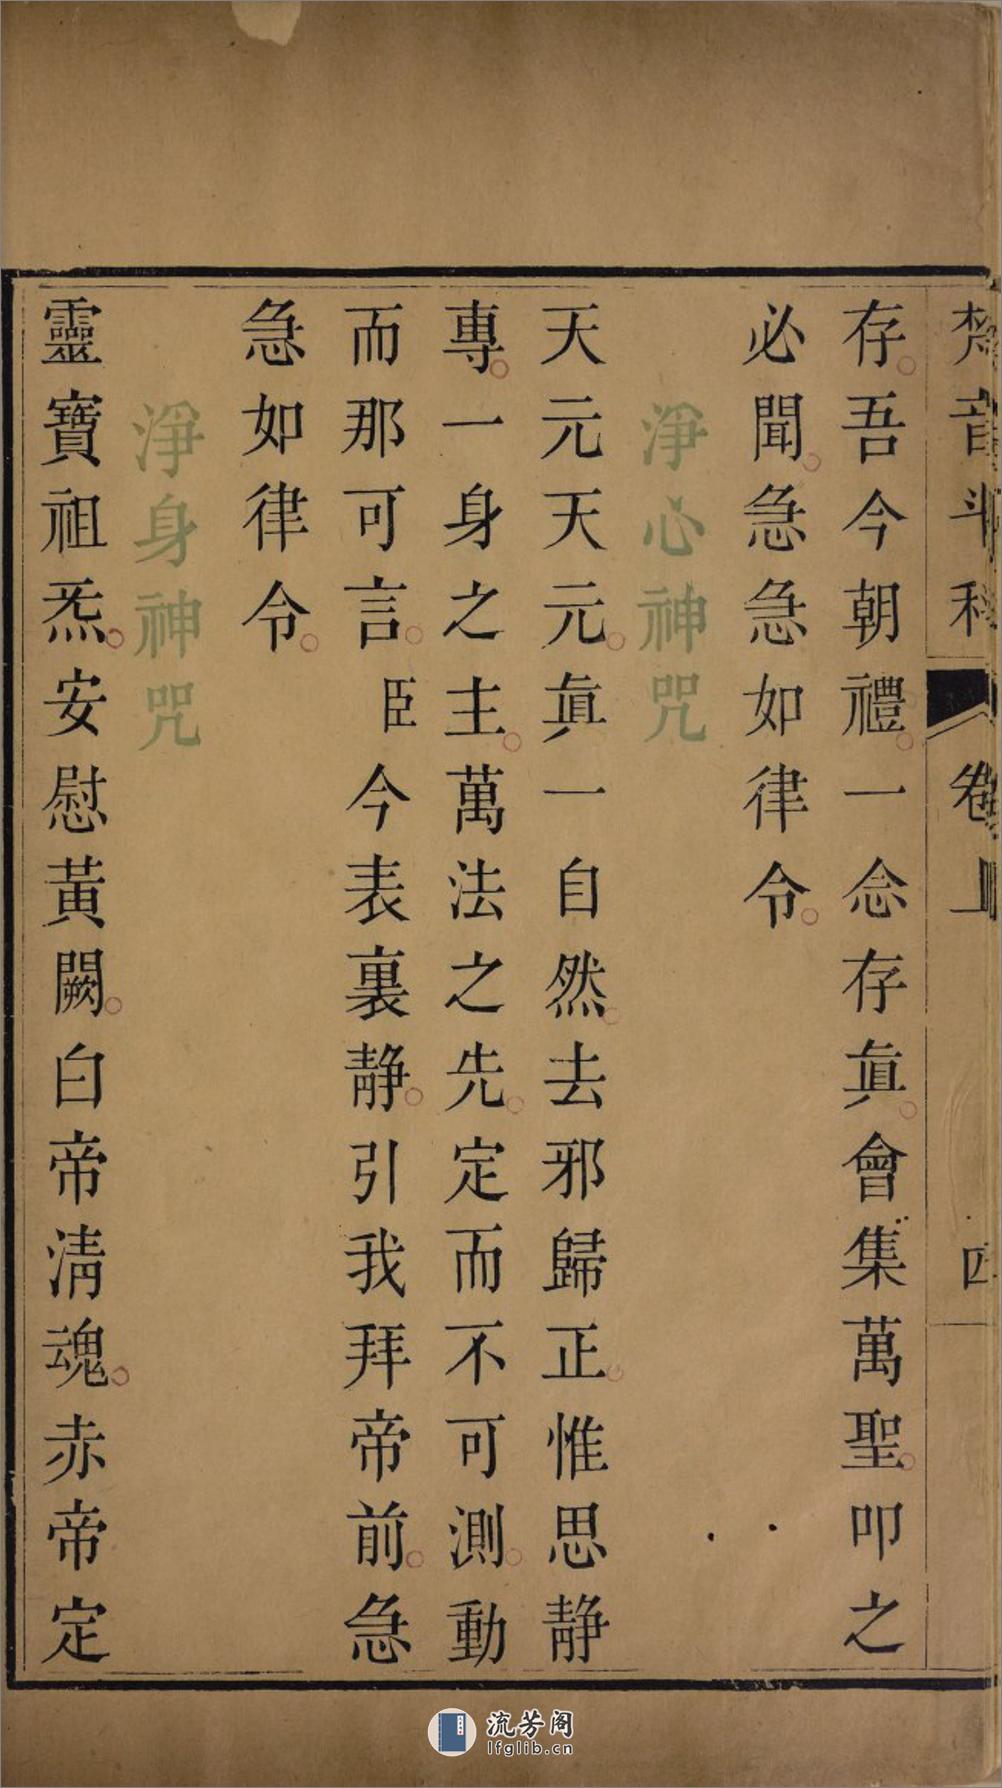 梵音斗科 卷上 四
存吾今朝禮一念存眞會集萬聖叩之
必聞急急如律令
淨心神咒
天元天元眞一自然去邪歸正惟思靜
專一身之主萬法之先定而不可測動
而那可言臣今表裏靜引我拜帝前急
急如律令
淨身神咒
靈寶祖炁安慰黃闕白帝淸魂赤帝定
流芳阁
lfglib.cn